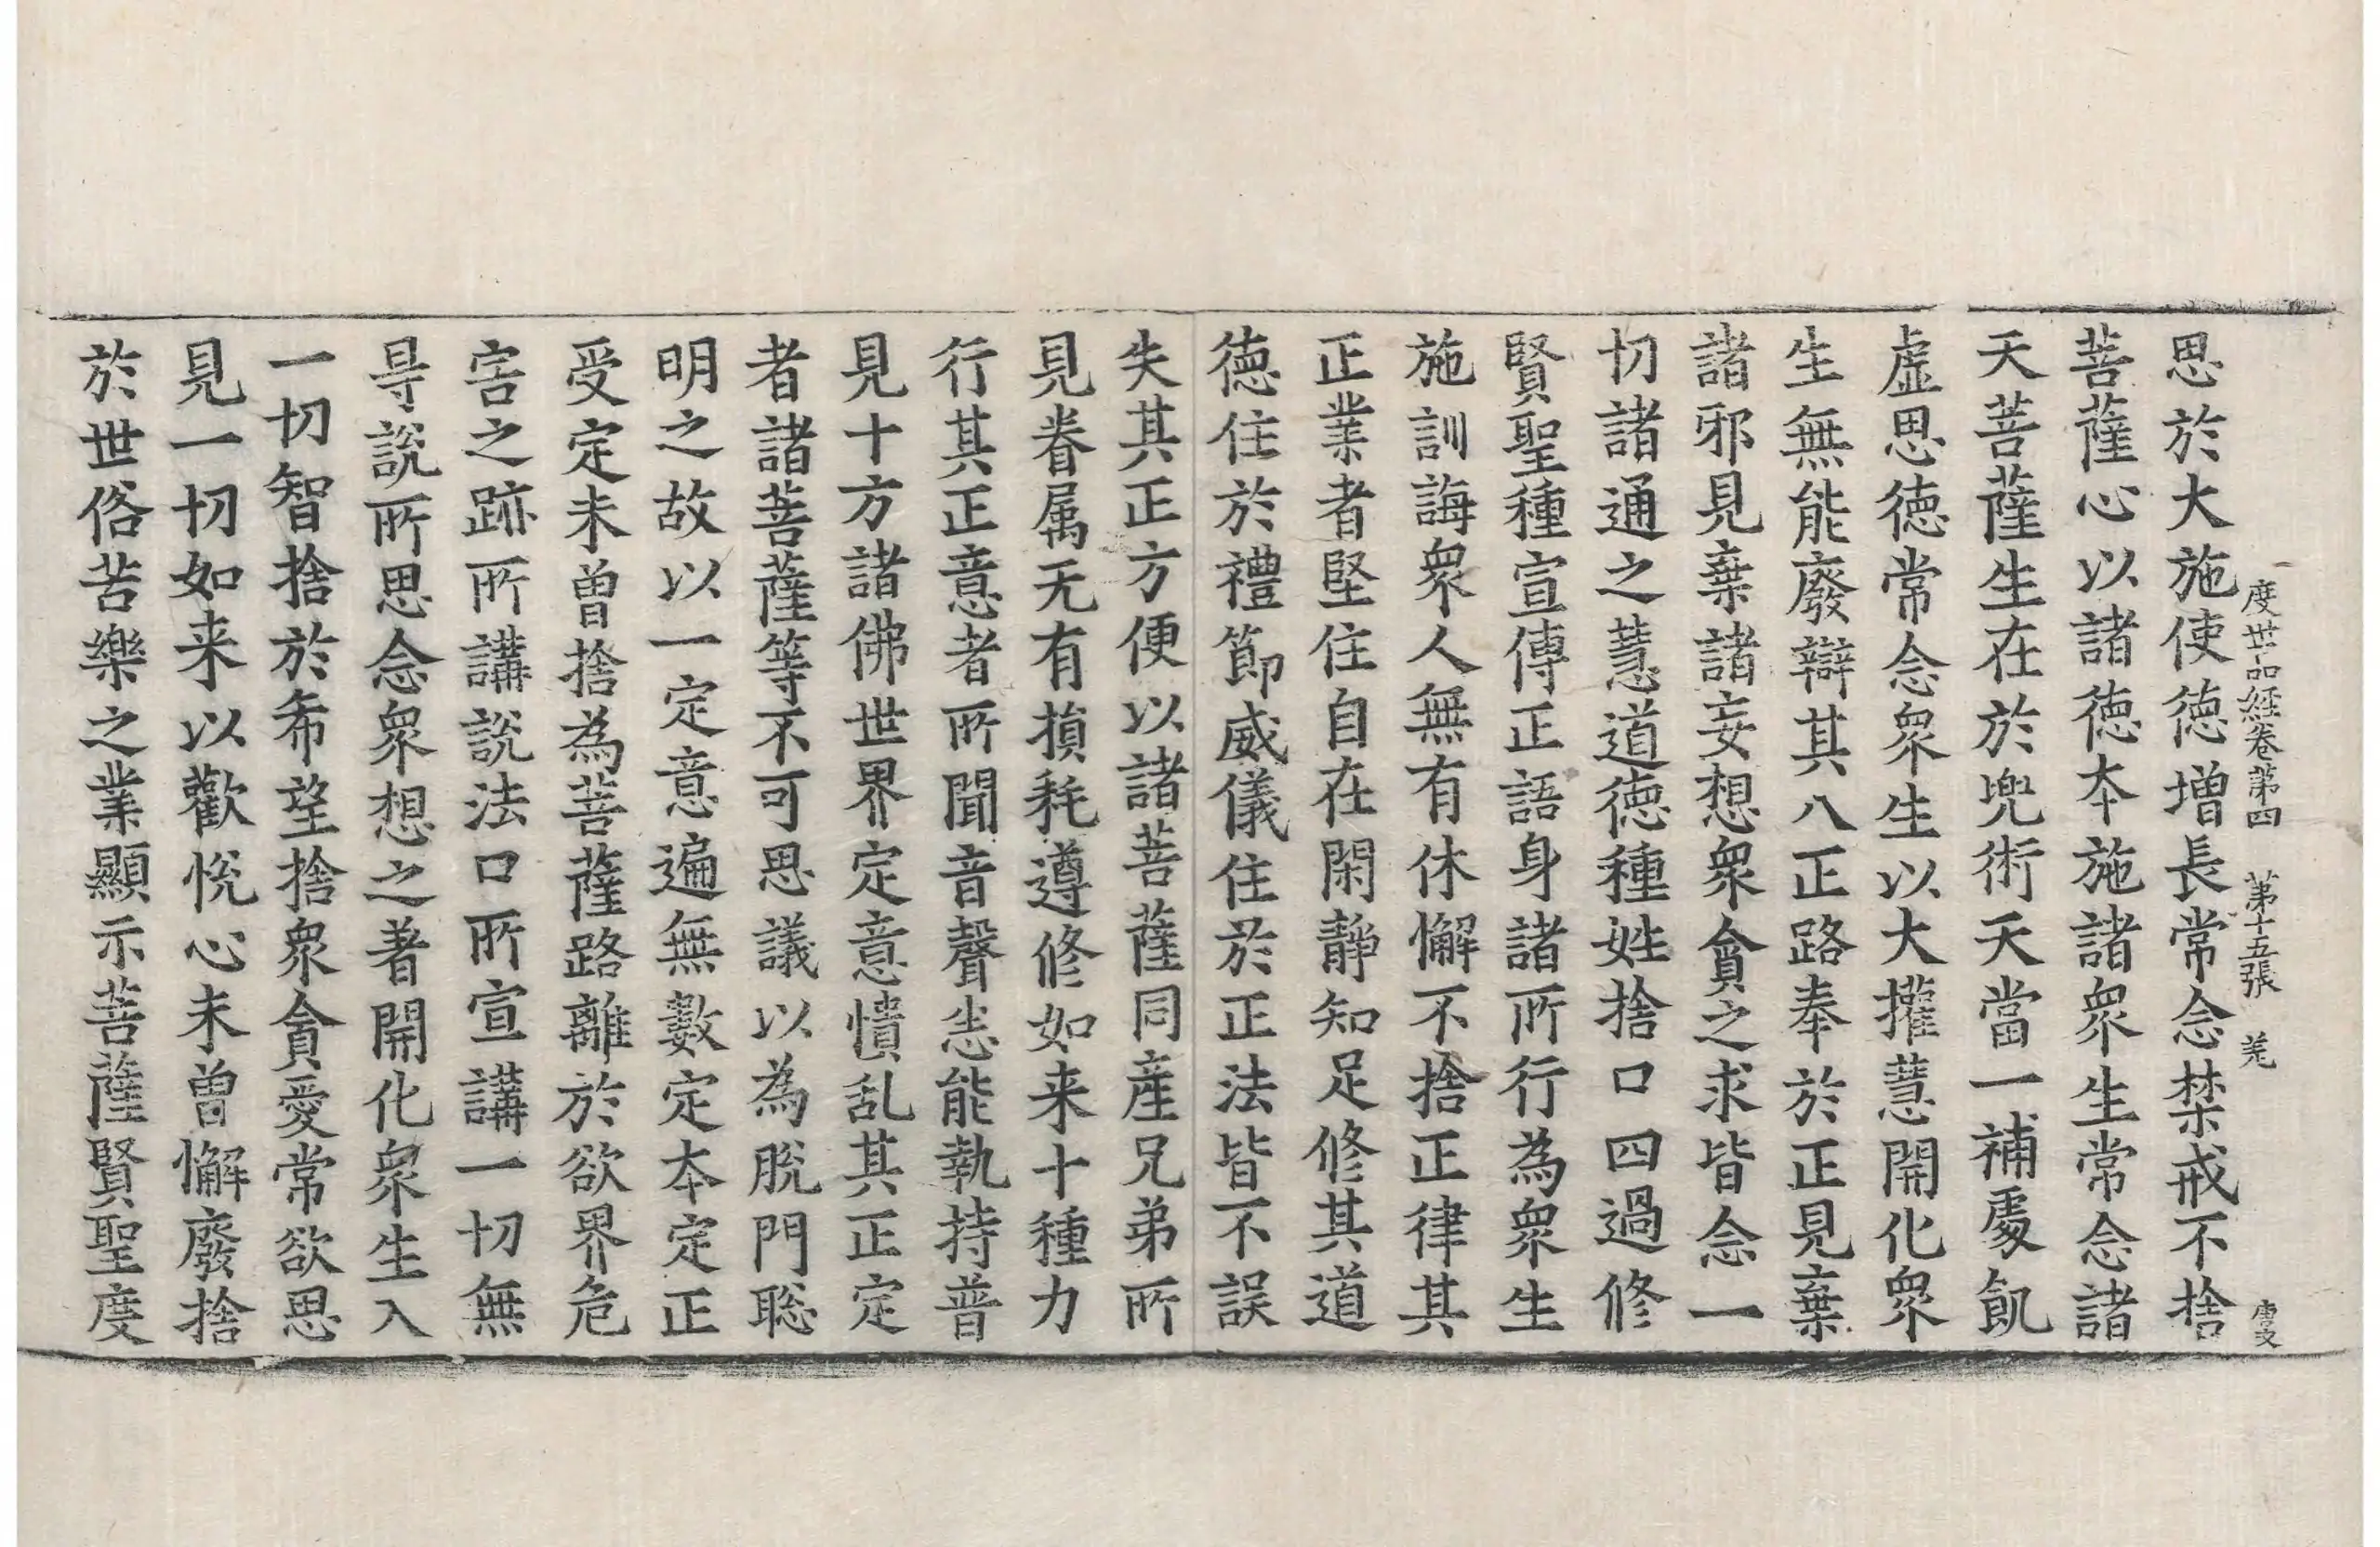 度世品経巻第四　第十五張　羌
思於大施使徳増長常念禁戒不捨
菩薩心以諸徳本施諸衆生常念諸
天菩薩生在於兜術天當一補處飢
虚思徳常念衆生以大權慧開化衆
生無能廢辯其八正路奉於正見棄
諸邪見棄諸妄想衆貪之求皆念一
切諸通之慧道徳種姓捨口四過修
賢聖種宣傳正語身諸所行為衆生
施訓誨衆人無有休懈不捨正律其
正業者堅住自在閑靜知足修其道
徳住於禮節威儀住於正法皆不誤
失其正方便以諸菩薩同産兄弟所
見眷属无有損耗遵修如来十種力
行其正意者所聞音聲悉能執持普
見十方諸佛世界定意憒乱其正定
者諸菩薩等不可思議以為脱門聡
明之故以一定意遍無數定本定正
受定未曽捨為菩薩路離於欲界危
害之跡所講説法口所宣講一切無
㝵説所思念衆想之著開化衆生入
一切智捨於希望捨衆貪愛常欲思
見一切如来以歡悅心未曽懈廢捨
於世俗苦樂之業顯示菩薩賢聖度